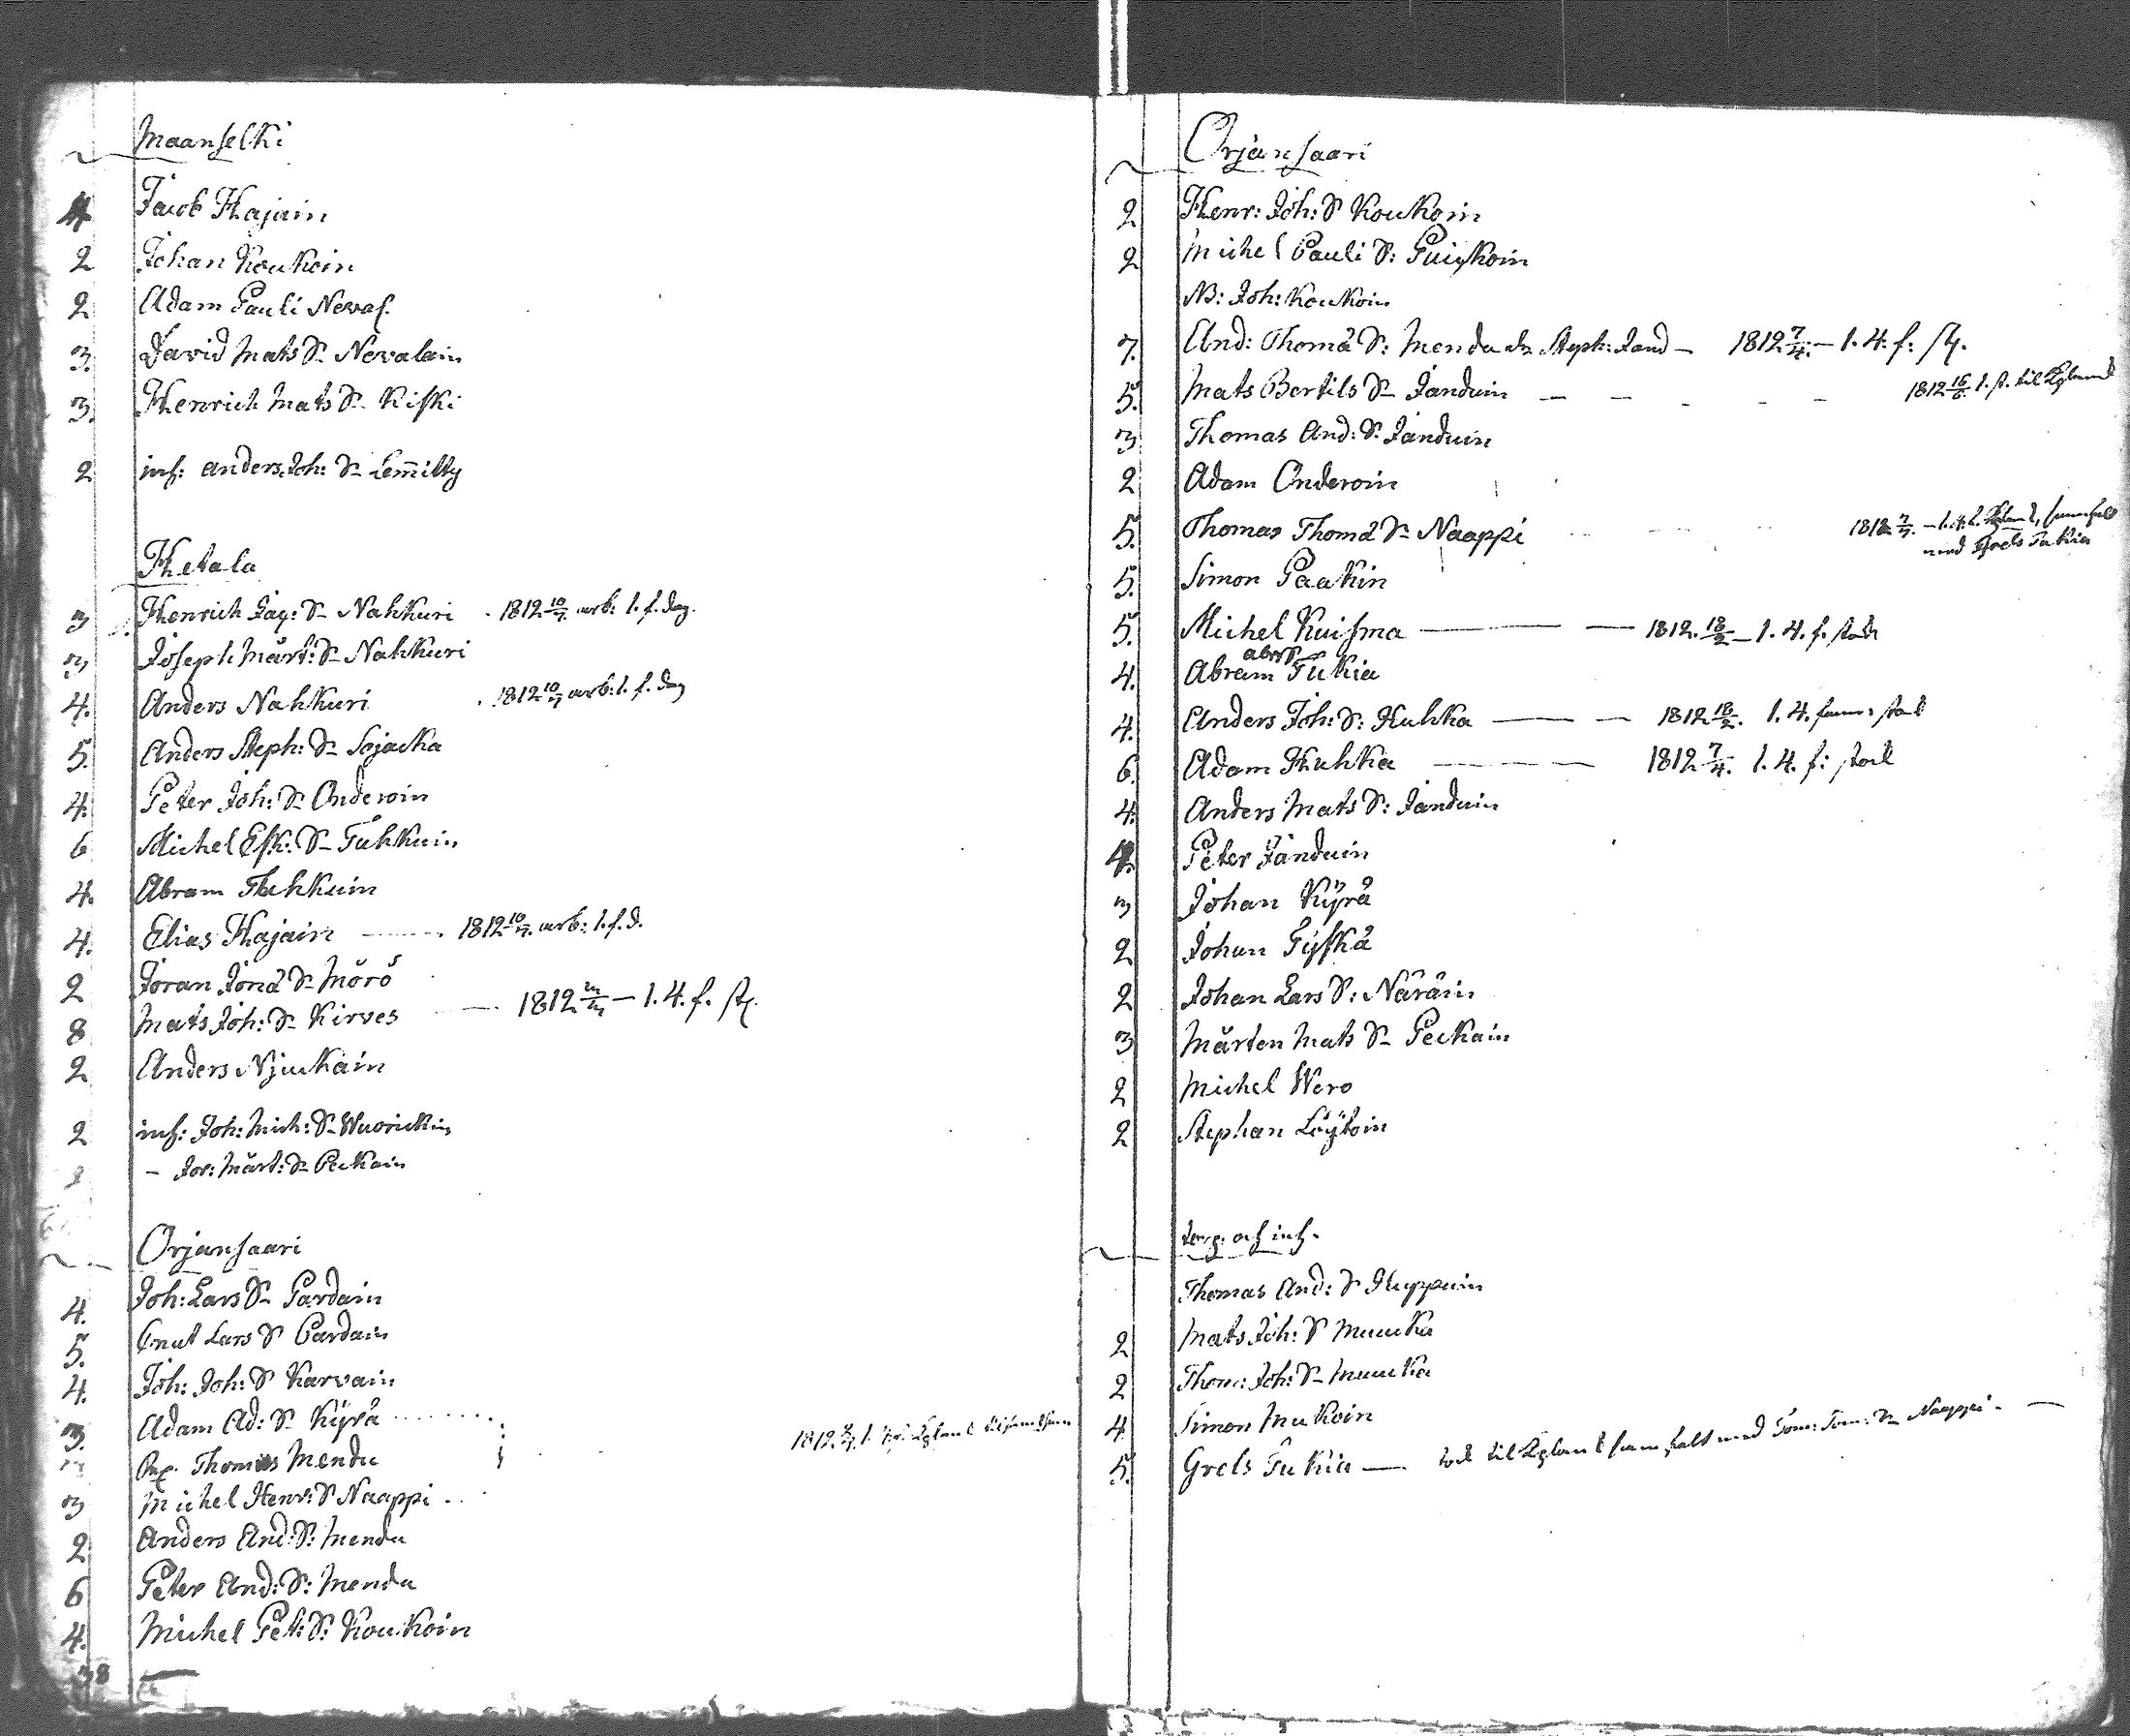 Maanselki
4 Jacob Hajain
2 Johan Koukoin
2 Adam Pauli Neval.
3. David Mats S:n Nevalain
3. Henrich Mats S:n Kiski
2 inh: Anders Joh: S:n Lem̄itty
Hetala
3 Henrich Jac: S:n Nahkuri . 1812 10/7. arb: 1. f. dag.
3 Joseph Märt: S:n Nahkuri
4. Anders Nahkuri . 1812 10/7 arb: 1. f. dag
5. Anders Steph: S:n Sojacka
4. Peter Joh: S:n Onderoin
6 Michel Esk: S:n Tuhkuin
4. Abram Tuhkuin
4. Elias Hajain 1812 10/7. arb: 1. f. d.
2 Jöran Jöna S:n Mörö
8 Mats Joh: S:n Kirves — 1812 — 1. 4. f. st.
2 Anders Njukäin
2 inh: Joh: Mich: S:n Wuorickin
2 — Jör: Märt: S:n Peckain
Orjansaari
4. Joh: Lars S:n Pardain
5. Cnut Lars S:n Pardain
4. Joh: Joh: S:n Karvain
3. Adam Ad: S:n Kÿrä
Thomas Mendu 1812
3 Michel Henr: S:n Naappi
2 Anders And: S: Mendu
6 Peter And: S: Mendu
4. Michel Pet: S: Koukoin
38
Orjansaari
2 Henr: Joh: S:n Koukoin
2 Michel Pauli S: Puigkoin
NB: Joh: Koukoin
7. And: Thomä S: Mendu Steph: Jand — 1812 7/4. — 1. 4. f. st.
5. Mats Bertils S:n Janduin — — — — — 1812 16/6. 1. st. til Kgland
3 Thomas And: S: Janduin
2 Adam Onderoin
5. Thomas Thomä S:n Naappi 1812 7/7. — 1. st. t. Kgland, samfält
med Grels Tukia
5. Simon Paakin
5. Michel Kuisma — 1812. 18/2 — 1. 4. f. stock
abrS
4. Abram Tukia
4. Anders Joh: S: Huhka — 1812 18/2. 1. 4. famn: stock
6 Adam Huhka — 1812 7/4. 1. 4. f: stock
4. Anders Mats S: Janduin
4. Peter Janduin
3 Johan Kÿrä
2 Johan Tÿskä
2 Johan Lars S: Näräin
3 Mårten Mats S:n Peckain
2 Michel Wero
2 Stephan Löÿtöin
torp. och inh.
Thomas And: S Huppuin
2 Mats Joh: S Muucka
2 Thom: Joh: S:n Muucka
4 Simon Mukoin
5. Grels Tukia — til Kgland samfält med Tom: Tom: S:n Naappi. —